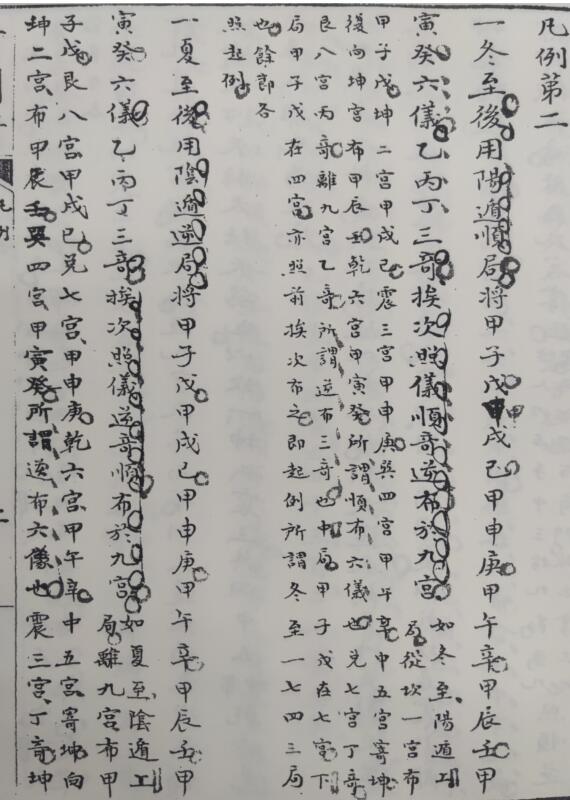 凡例第二
一冬至後用陽遁順局將甲子戊甲戌己甲申庚甲午辛甲辰壬甲
寅癸六儀乙丙丁三奇挨次照儀順奇逆布於九宮如冬至陽遁上
局從坎一宮布
甲子戊坤二宮甲戌己震三宮甲申庚巽四宮甲午辛中五宮寄坤
復向坤宮布甲辰壬乾六宮甲寅癸所謂順布六儀也兌七宮丁奇
艮八宮丙奇離九宮乙奇所謂逆布三奇也中局甲子戊在七宮下
局甲子戊在四宮亦照前挨次布之即起例所謂冬至一七四三局
也餘即各
照起例
一夏至後用陰遁逆局將甲子戊甲戌己甲申庚甲午辛甲辰壬甲
寅癸六儀乙丙丁三奇挨次照儀逆奇順布於九宮如夏至陰遁上
局離九宮布甲
子戊艮八宮甲戌己兌七宮甲申庚乾六宮甲午辛中五宮寄坤向
坤二宮布甲辰壬巽四宮甲寅癸所謂逆布六儀也震三宮丁奇坤